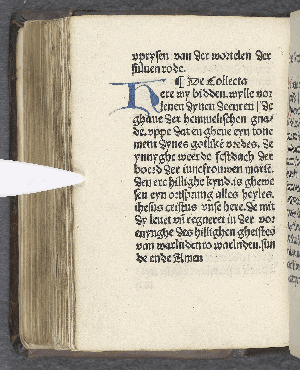 vprysen van der wortelen der
suluen rode.
¶ De Collecta
Here wy bidden wylle vor
lenen dynen deenren de
ghaue der hemmelischen gna-
de. vppe dat en gheue eyn tone
ment dynes gotliké vredes. de
ynnyghe werde festdach der
bord der iuncfrouwen marie.
den ere hillighe kynd is ghewe
sen eyn orsprung alles heyles.
ihesus cristus vnse here. De mit
dy leuet vñ regneret in der vor
enynghe des hillighen gheistes
van werlnden to werlnden. sun
der ende Amen